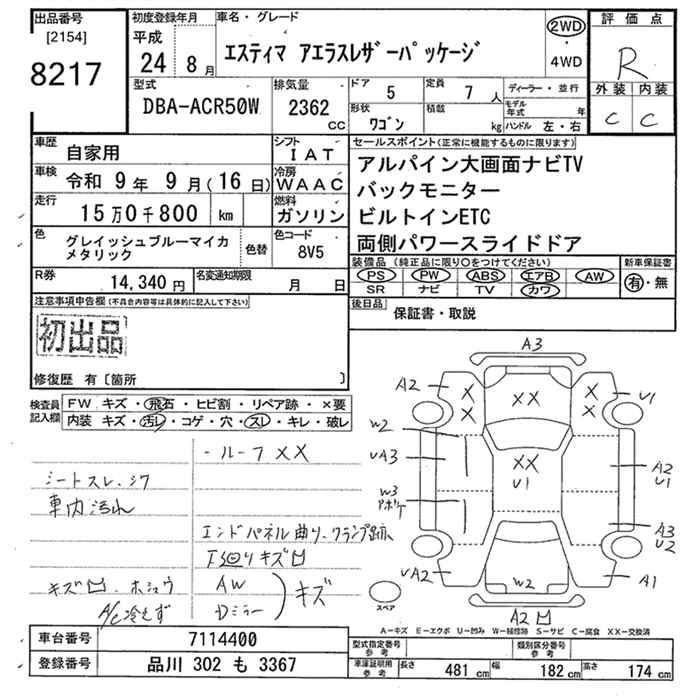 出品番号
[2154]
8217
初度登録年月
平成
24年 8月
車名・グレード
エスティマ アエラスレザーパッケージ
2WD
4WD
評価点
R
外装 内装
C C
型式
DBA-ACR50W
排気量
2362
CC
ドア
5
定員
7人
形状
ワゴン
積載
kg
ディーラー・並行
モデル年式
年
ハンドル 左・右
車歴
自家用
シフト
IAT
車検
令和 9年 9月(16日)
冷房
WAAC
走行
15万0千800 km
燃料
ガソリン
色
グレイッシュブルーマイカ
メタリック
色替
色コード
8V5
R券
14,340円
名変通知期限
月 日
セールスポイント(正常に機能するものに限ります)
アルパイン大画面ナビTV
バックモニター
ビルトインETC
両側パワースライドドア
装備品(純正品に限り○をつけてください)
PS PW ABS エアB AW
SR ナビ TV カワ
新車保証書
有・無
後日品
保証書・取説
注意事項申告欄(不具合内容等は具体的に記入して下さい)
初出品
修復歴 有〔箇所 〕
検査員記入欄
FW キズ・飛石・ヒビ割・リペア跡・×要
内装 キズ・汚レ・コゲ・穴・スレ・キレ・破レ
・ルーフXX
シートスレ、シワ
車内汚れ
エンドパネル曲り、クランプ跡
下回りキズ凹
キズ凹、ホシュウ
A/C冷えず
AW
Dミラー
キズ
A3
A2
XX
XX
XX
U1
W2
UA3
W3
XX
U1
A2
U1
A3
U2
UA2
W2
A1
スペア
A2凹
A-キズ E-エクボ U-凹み W-補修跡 S-サビ C-腐食 XX-交換済
車台番号
7114400
登録番号
品川 302 も 3367
型式指定番号
参考
類別区分番号
参考
車庫証明用
参考
長さ 481cm
幅 182cm
高さ 174cm